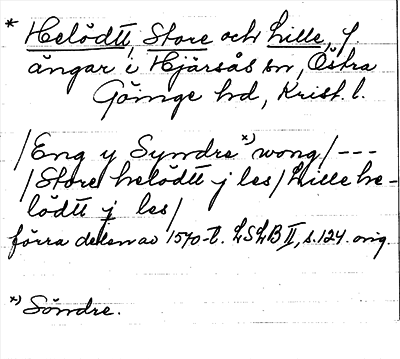 * Helödtt, Store och Lille, f.
ängar i Hjärsås sn, Östra
Göinge hd, Krist. l.
/Eng y Syndre *) wong/ ---
/Store helödtt j les/ Lille he-
lödtt j les/
förra delen av 1570-t. LSLB II, s. 124. orig.
*) Söndre.